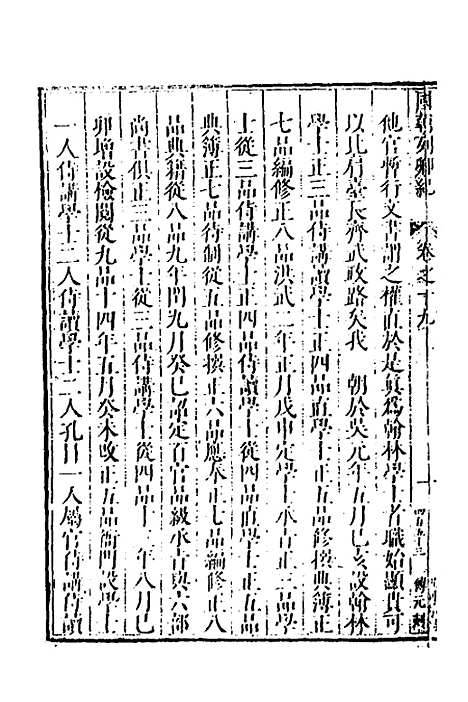 國朝列卿紀 卷之十九
他官暫行文書謂之權直於是眞爲翰林學士者職始顯貴可
以比肩臺長齊武政路矣我 朝於吳元年五月己亥設翰林
學士正三品侍講學士正四品直學士正五品修撰典簿正
七品編修正八品洪武二年正月戊申定學士承旨正三品學
士從三品侍講學士正四品侍讀學士從四品直學士正五品
典簿正七品待制從五品修撰正六品應奉正七品編修正八
品典籍從八品九年閏九月癸巳詔定百官品級承旨與六部
尚書俱正三品學士從三品侍講學士從四品十 年八月己
卯增設檢閱從九品十四年五月癸未改正五品衙門設學士
一人侍講學士二人侍讀學士二人孔目一人屬官侍講侍讀